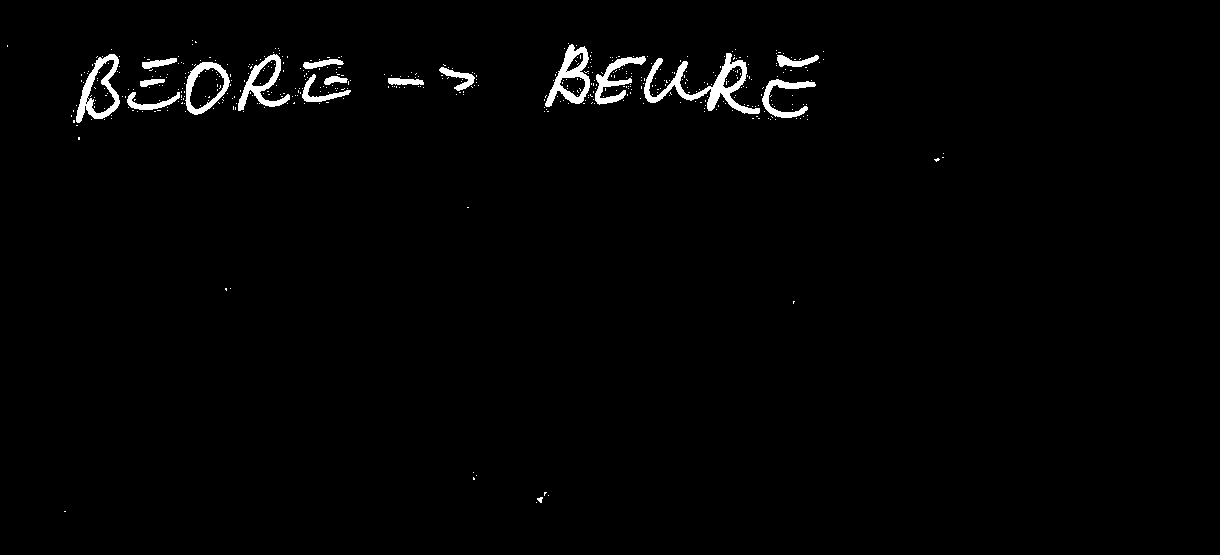 BEORE -> BEURE